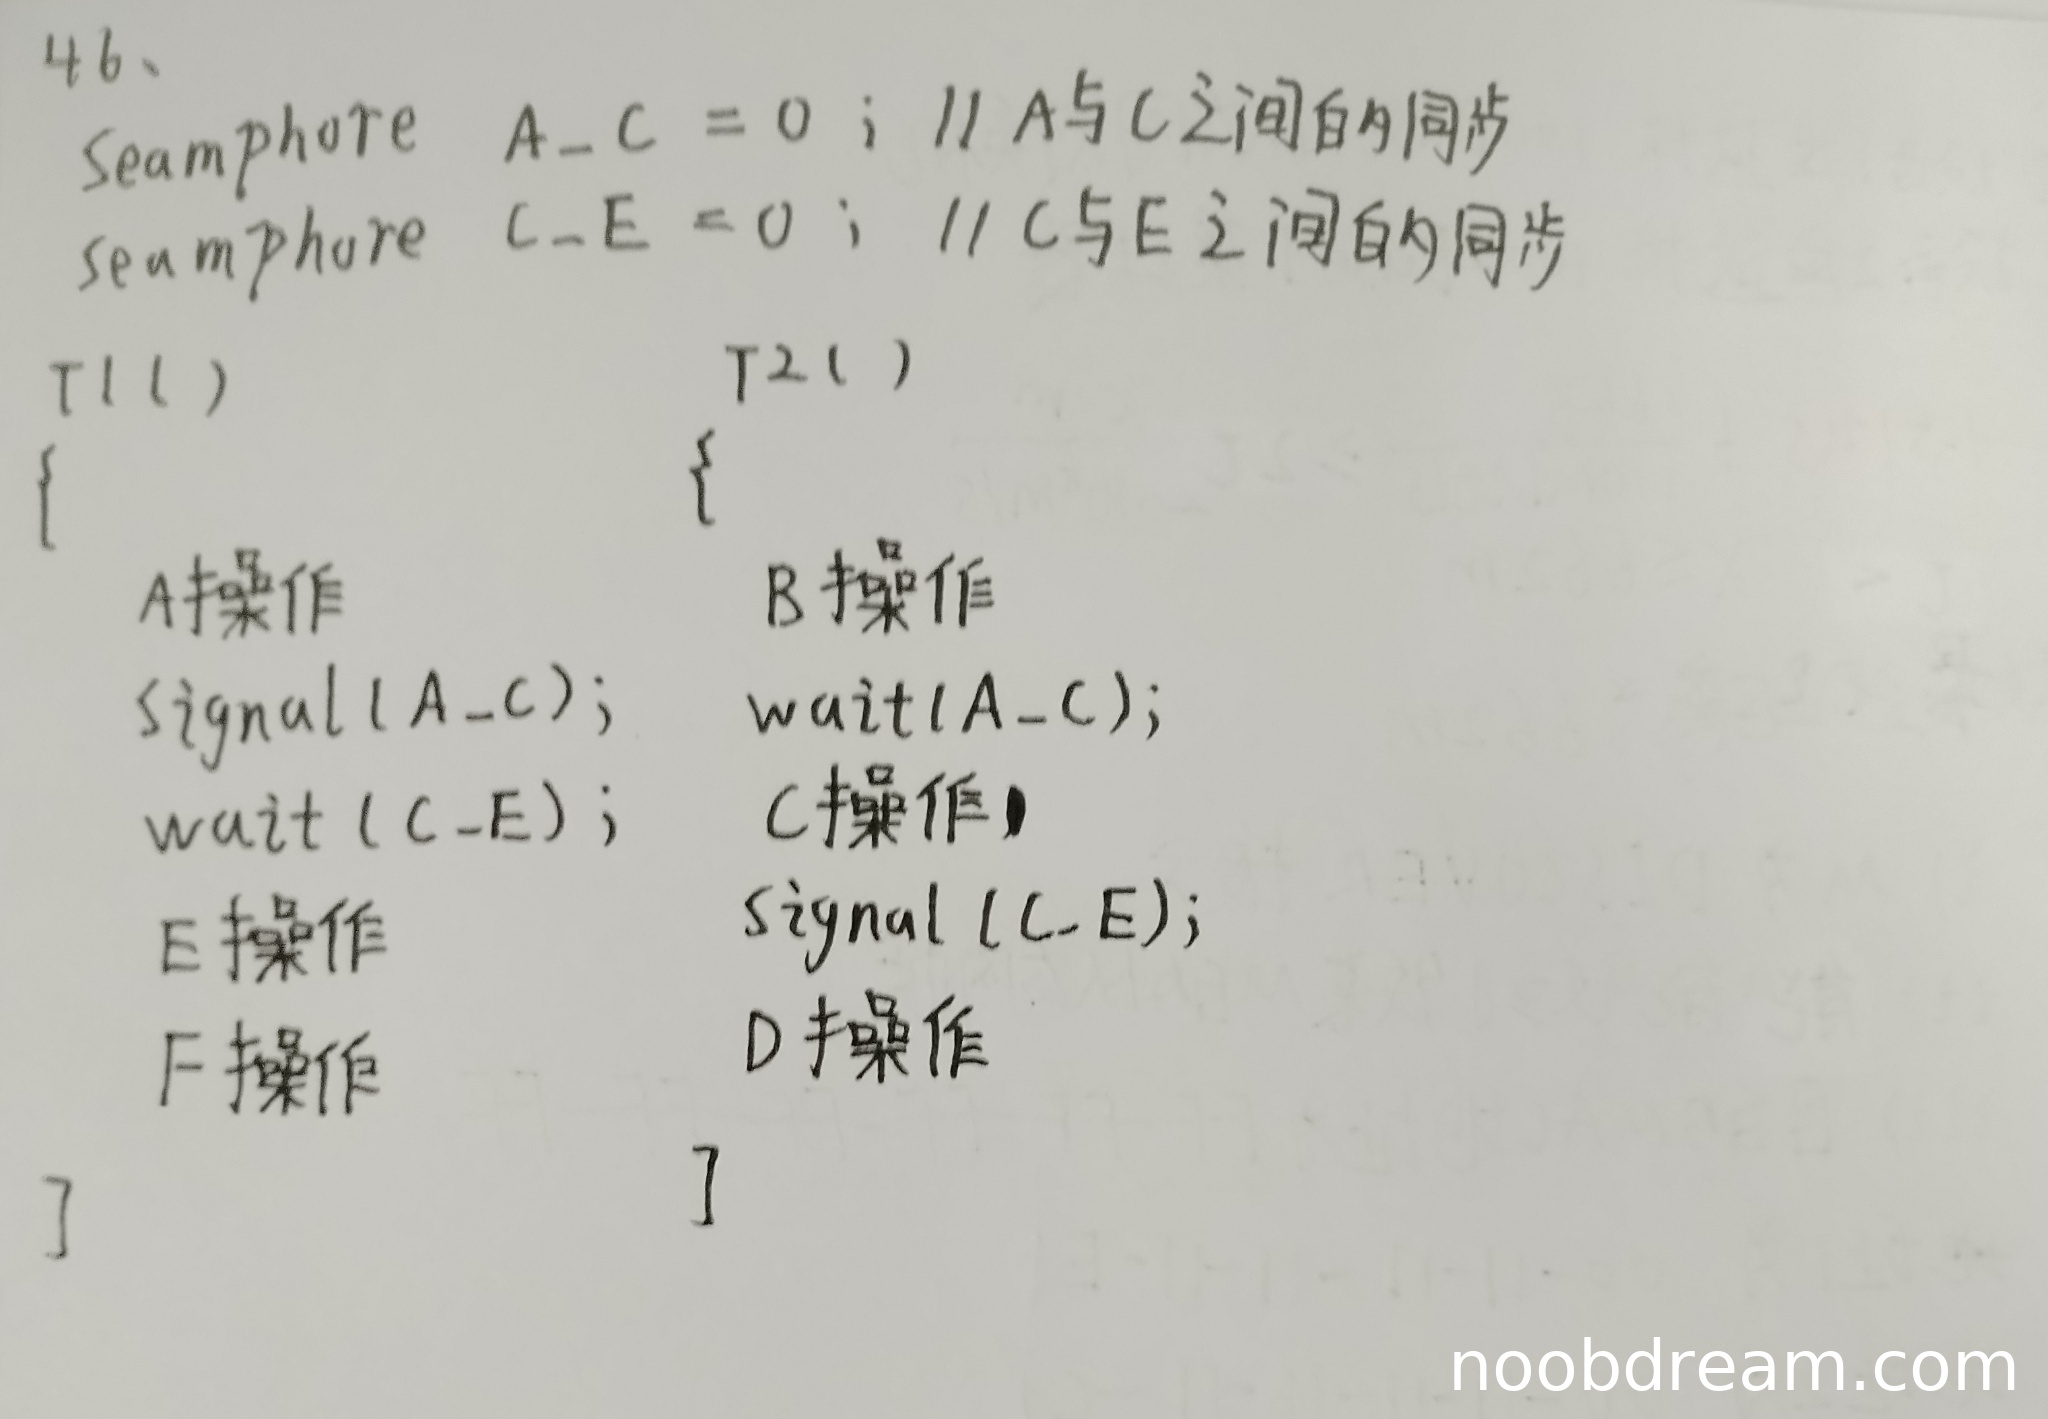 46、
Seamphore A_C = 0 ; // A与C之间的同步
seamphore C_E = 0 ; // C与E之间的同步
T1()
{
A操作
signal(A_C);
wait(C_E);
E操作
F操作
]
T2()
{
B操作
wait(A_C);
C操作
signal(C_E);
D操作
]
noobdream.com